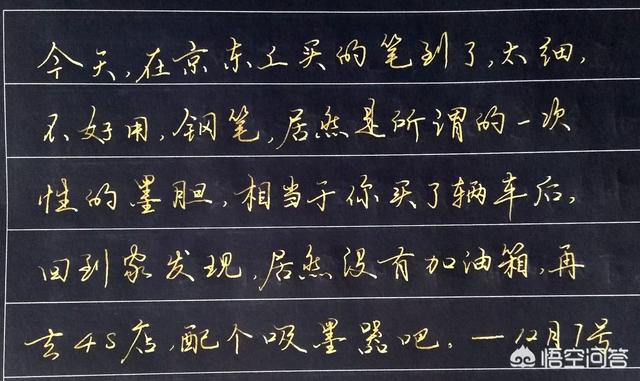 今天,在京东上买的笔到了,太细,
不好用,钢笔,居然是所谓的一次
性的墨胆,相当于你买了辆车后,
回到家发现,居然没有加油箱,再
去4S店,配个吸墨器吧,—12月7号
悟空问答